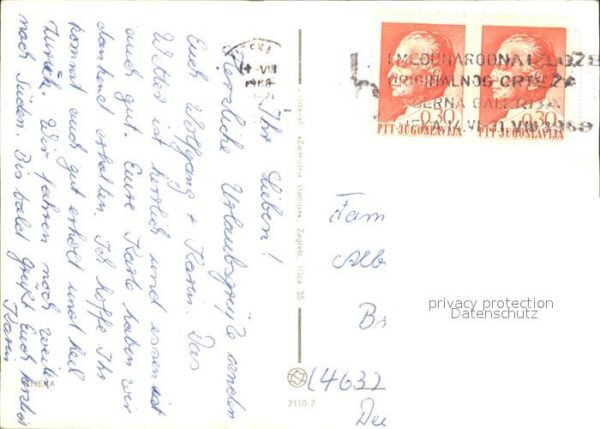 Ihr Lieben!
Herzliche Urlaubsgrüße senden
Euch Wolfgang + Karin. Das
Wetter ist herrlich und essen ist
auch gut. Eure Karte haben wir
dankend erhalten. Ich hoffe Ihr
kommt auch gut erholt und heil
zurück. Wir fahren noch weiter
nach Süden. Bis bald grüßt Euch herzlich
Karin
RIJEKA
»Zadružna štampa«, Zagreb, Ilica 35
2110 7
1968
MEĐUNARODNA IZLOŽB
ORIGINALNOG CRTEŽA
MODERNA GALERIJA
0,30
0,30
PTT-JUGOSLAVIJA
PTT-JUGOSLAVIJA
Fam
Alb
privacy protection
Datenschutz
(4632